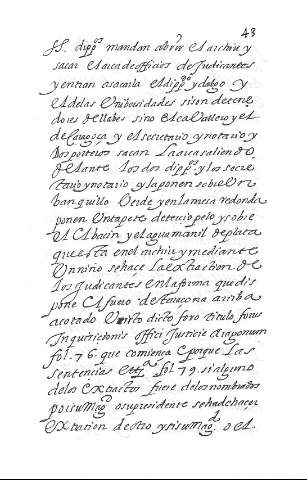 43
SS. dipp.os mandan abrir el archiu y
sacar el arca de officios de Judicantes
y entran a sacarla el dipp.do y
el de las Universidades si son de cene
dores de llabes sino el cavallero y el
de Çaragoça y el secretario y notario y
dos porteros sacan la arca saliendo
delante los dos dipp.os y los secre
tario y notario, y la ponen sobre Un
banquillo Verde y en la mesa redonda
ponen Un tapete de terciopelo y sobre
el El bacin y el aguamanil de plata
que esta en el archiu y mediante
Un niño se haçe la extraction de
los Judicantes en la forma que dis
pone El fuero de Taraçona arriba
acotado Visto dicto foro titulo, forus
Inquisitionis officii Justicie Aragonum
fol. 76. que comiença E porque las
sentencias etc. fol. 79. si alguno
de los Extractos fuere de los nombrados
por su Mag.d o su presidente se ha de haçer
extraction de otro y si su Mag.d o el